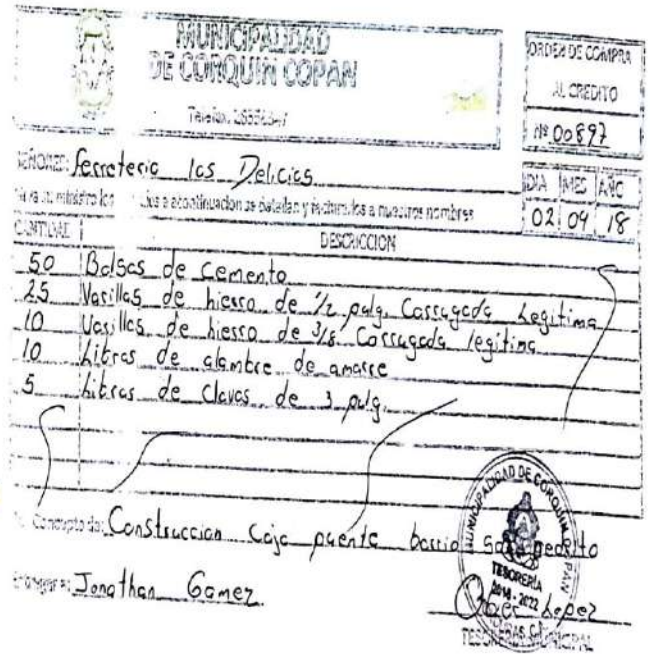 MUNICIPALIDAD
DE CORQUIN COPAN
ORDEN DE COMPRA
AL CREDITO
Nº 00897
SEÑORES: Ferreteria las Delicias
DIA MES AÑO
02 09 18
a continuacion se detallan y facturarlos a nuestros nombres
CANTIDAD DESCRIPCION
50 Bolsas de Cemento
25 Varillas de hierro de 1/2 pulg. Corrugada Legitima
10 Varillas de hierro de 3/8 Corrugada legitima
10 Libras de alambre de amarre
5 Libras de Clavos de 3 pulg.
Concepto de: Construccion Caja puente barrio San pedrito
Jonathan Gamez
MUNICIPALIDAD DE CORQUIN COPAN
TESORERIA
2018 - 2022
Lopez